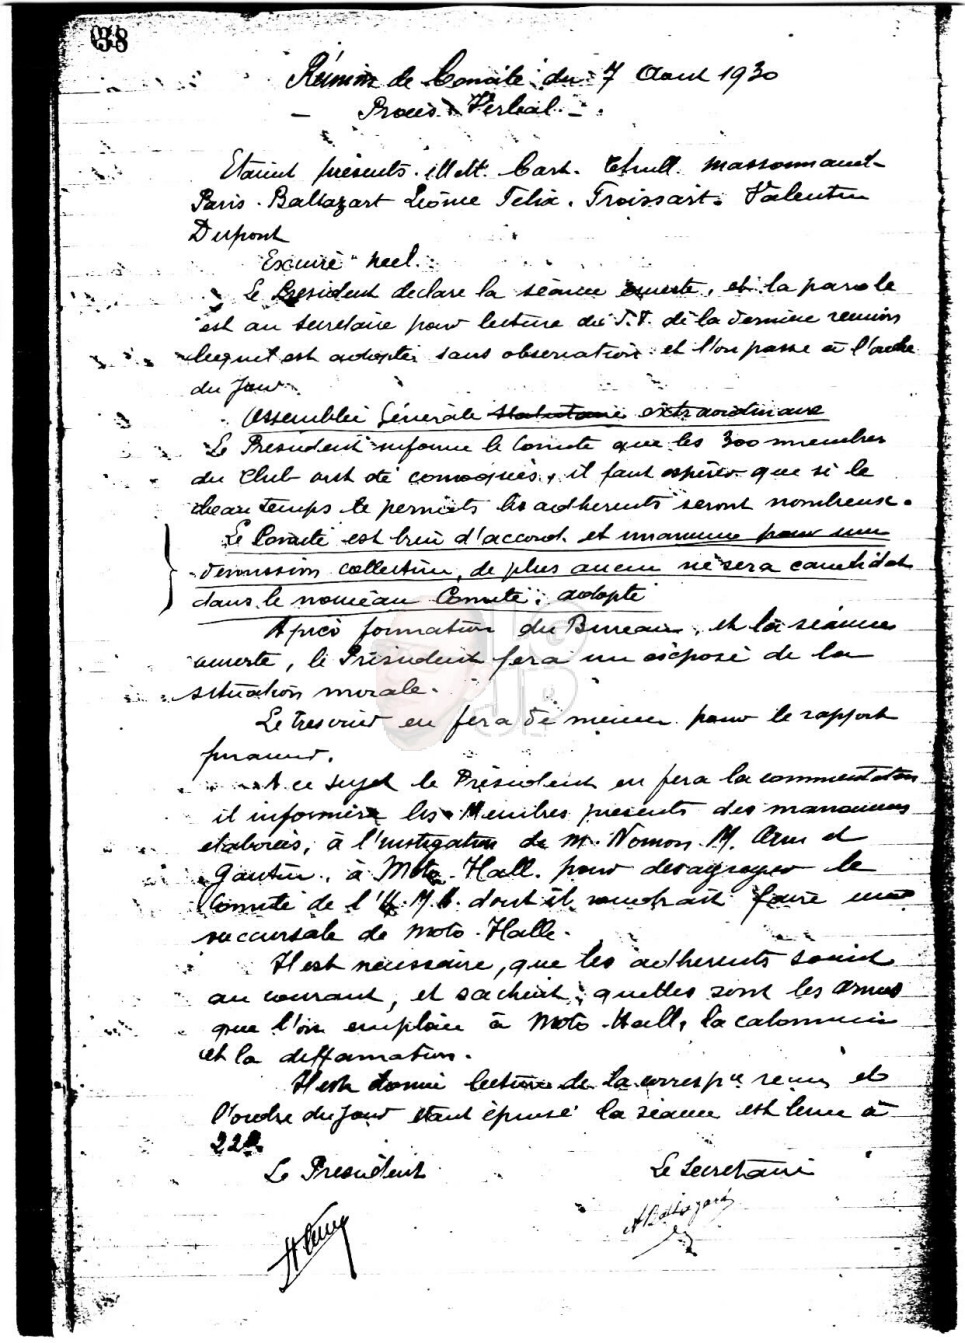 58
Réunion de Comité du 7 Aout 1930
- Procès Verbal -
Etaient présents. MM. Cart. Massonnaud
Paris. Baltazart Léonie Felix. Froissart. Valentin
Dupont
Excusé Neel.
Le President declare la séance ouverte, et la parole
est au secretaire pour lecture du P.V. de la derniere reunion
lequel est adopté sans observation et l'on passe à l'ordre
du Jour
Assemblée Générale Statutaire extraordinaire
Le President informe le Comité que les 300 membres
du Club ont été convoqués, il faut espérer que si le
beau temps le permets les adherents seront nombreux.
Le Comité est bien d'accord et unanime pour une
demission collective, de plus aucun ne sera candidat
dans le nouveau Comité. adopté
Après formation du Bureau, et la séance
ouverte, le Président fera un exposé de la
situation morale.
Le tresorier en fera de meme pour le rapport
financier.
A ce sujet le Président en fera la commentation
il informera les Membres présents des manœuvres
elaborées, à l'instigation de M. Nomon. M. et
Gautin, à Moto-Hall. pour desagreger le
Comité de l'U.M. dont il voudrait faire une
succursale de Moto-Halle.
Il est nécessaire, que les adherents soient
au courant, et sachent, quelles sont les armes
que l'on emploie à Moto-Hall, la calomnie
et la diffamation.
Il est donné lecture de la correspce reçue et
l'ordre du jour etant épuisé la séance est levée à
22h
Le President Le Secretaire
ABaltazart